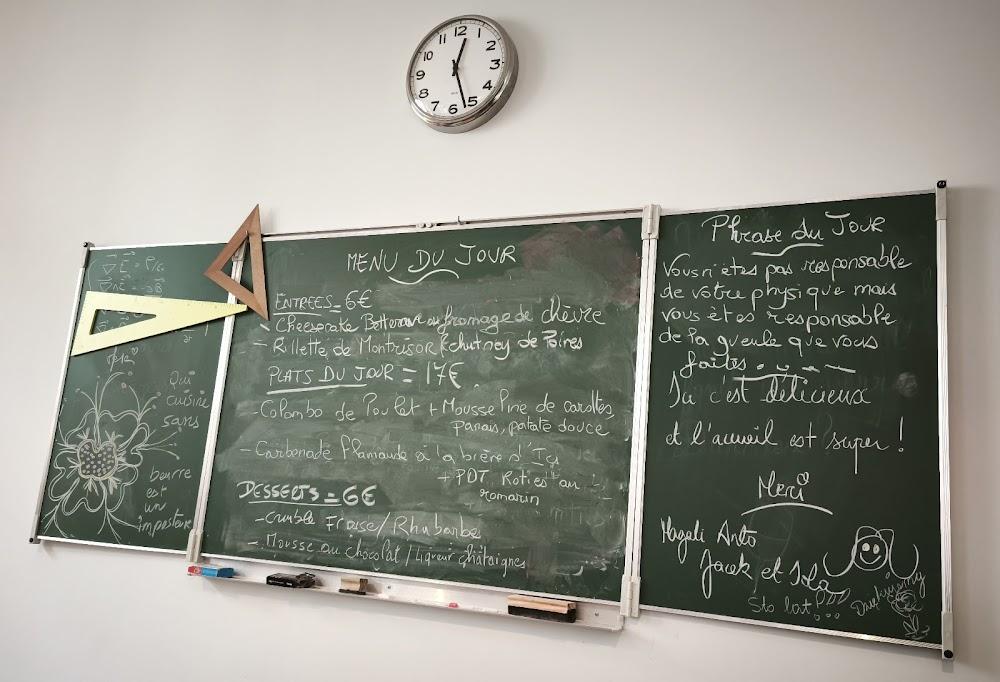 12
1
2
3
4
5
6
7
8
9
10
11
MENU DU JOUR
ENTREES = 6€
- Cheesecake Betterave au fromage de chèvre
- Rillette de Montrésor & chutney de Poires
PLATS DU JOUR = 17€
- Colombo de Poulet + Mousseline de carottes
panais, patate douce
- Carbonade flamande à la bière d'Ici
+ PDT Roties au
romarin
DESSERTS = 6€
- crumble Fraise / Rhubarbe
- Mousse au chocolat / liqueur châtaignes
Qui
cuisine
sans
beurre
est
un
imposteur
Phrase du JOUR
Vous n'êtes pas responsable
de votre physique mais
vous êtes responsable
de la gueule que vous
faites.
Ici c'est délicieux
et l'accueil est super !
Merci
Magali Anto
Jacek et Isla
Sto lat!